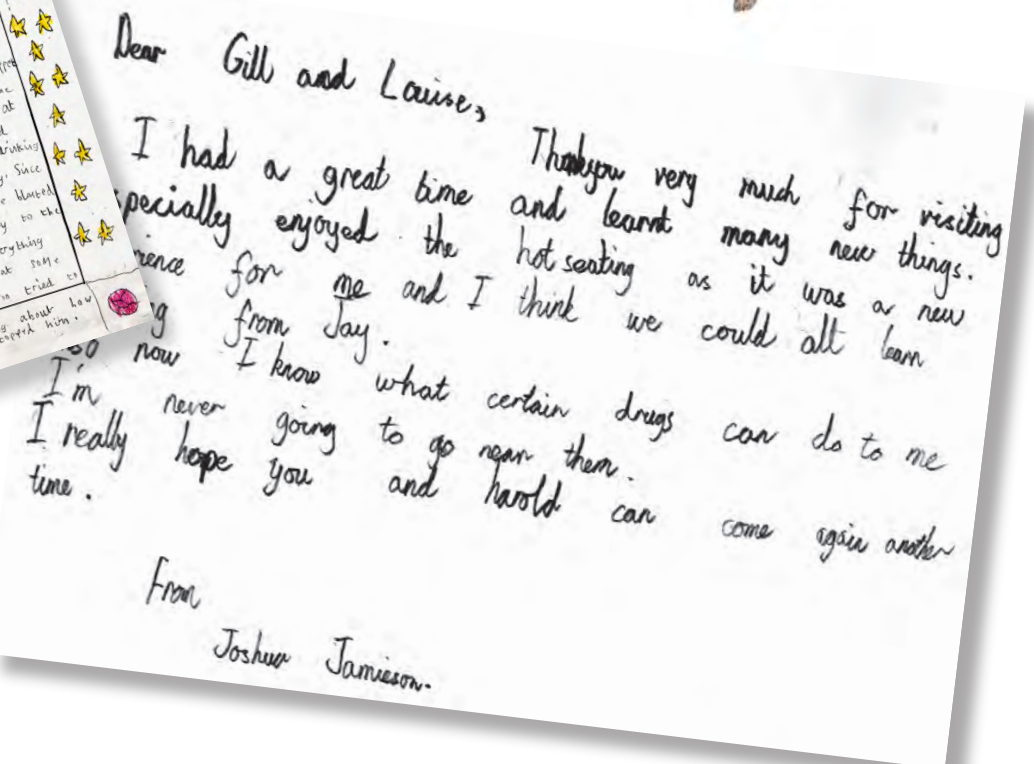 at
rinking
Since
blurted
to the
erything
at some
tried to
about how
topped him.
Dear Gill and Louise,
Thankyou very much for visiting
I had a great time and learnt many new things.
specially enjoyed the hot seating as it was a new
rience for me and I think we could all learn
g from Jay.
so now I know what certain drugs can do to me
I'm never going to go near them.
I really hope you and harold can come again another
time.
From
Joshua Jamieson.